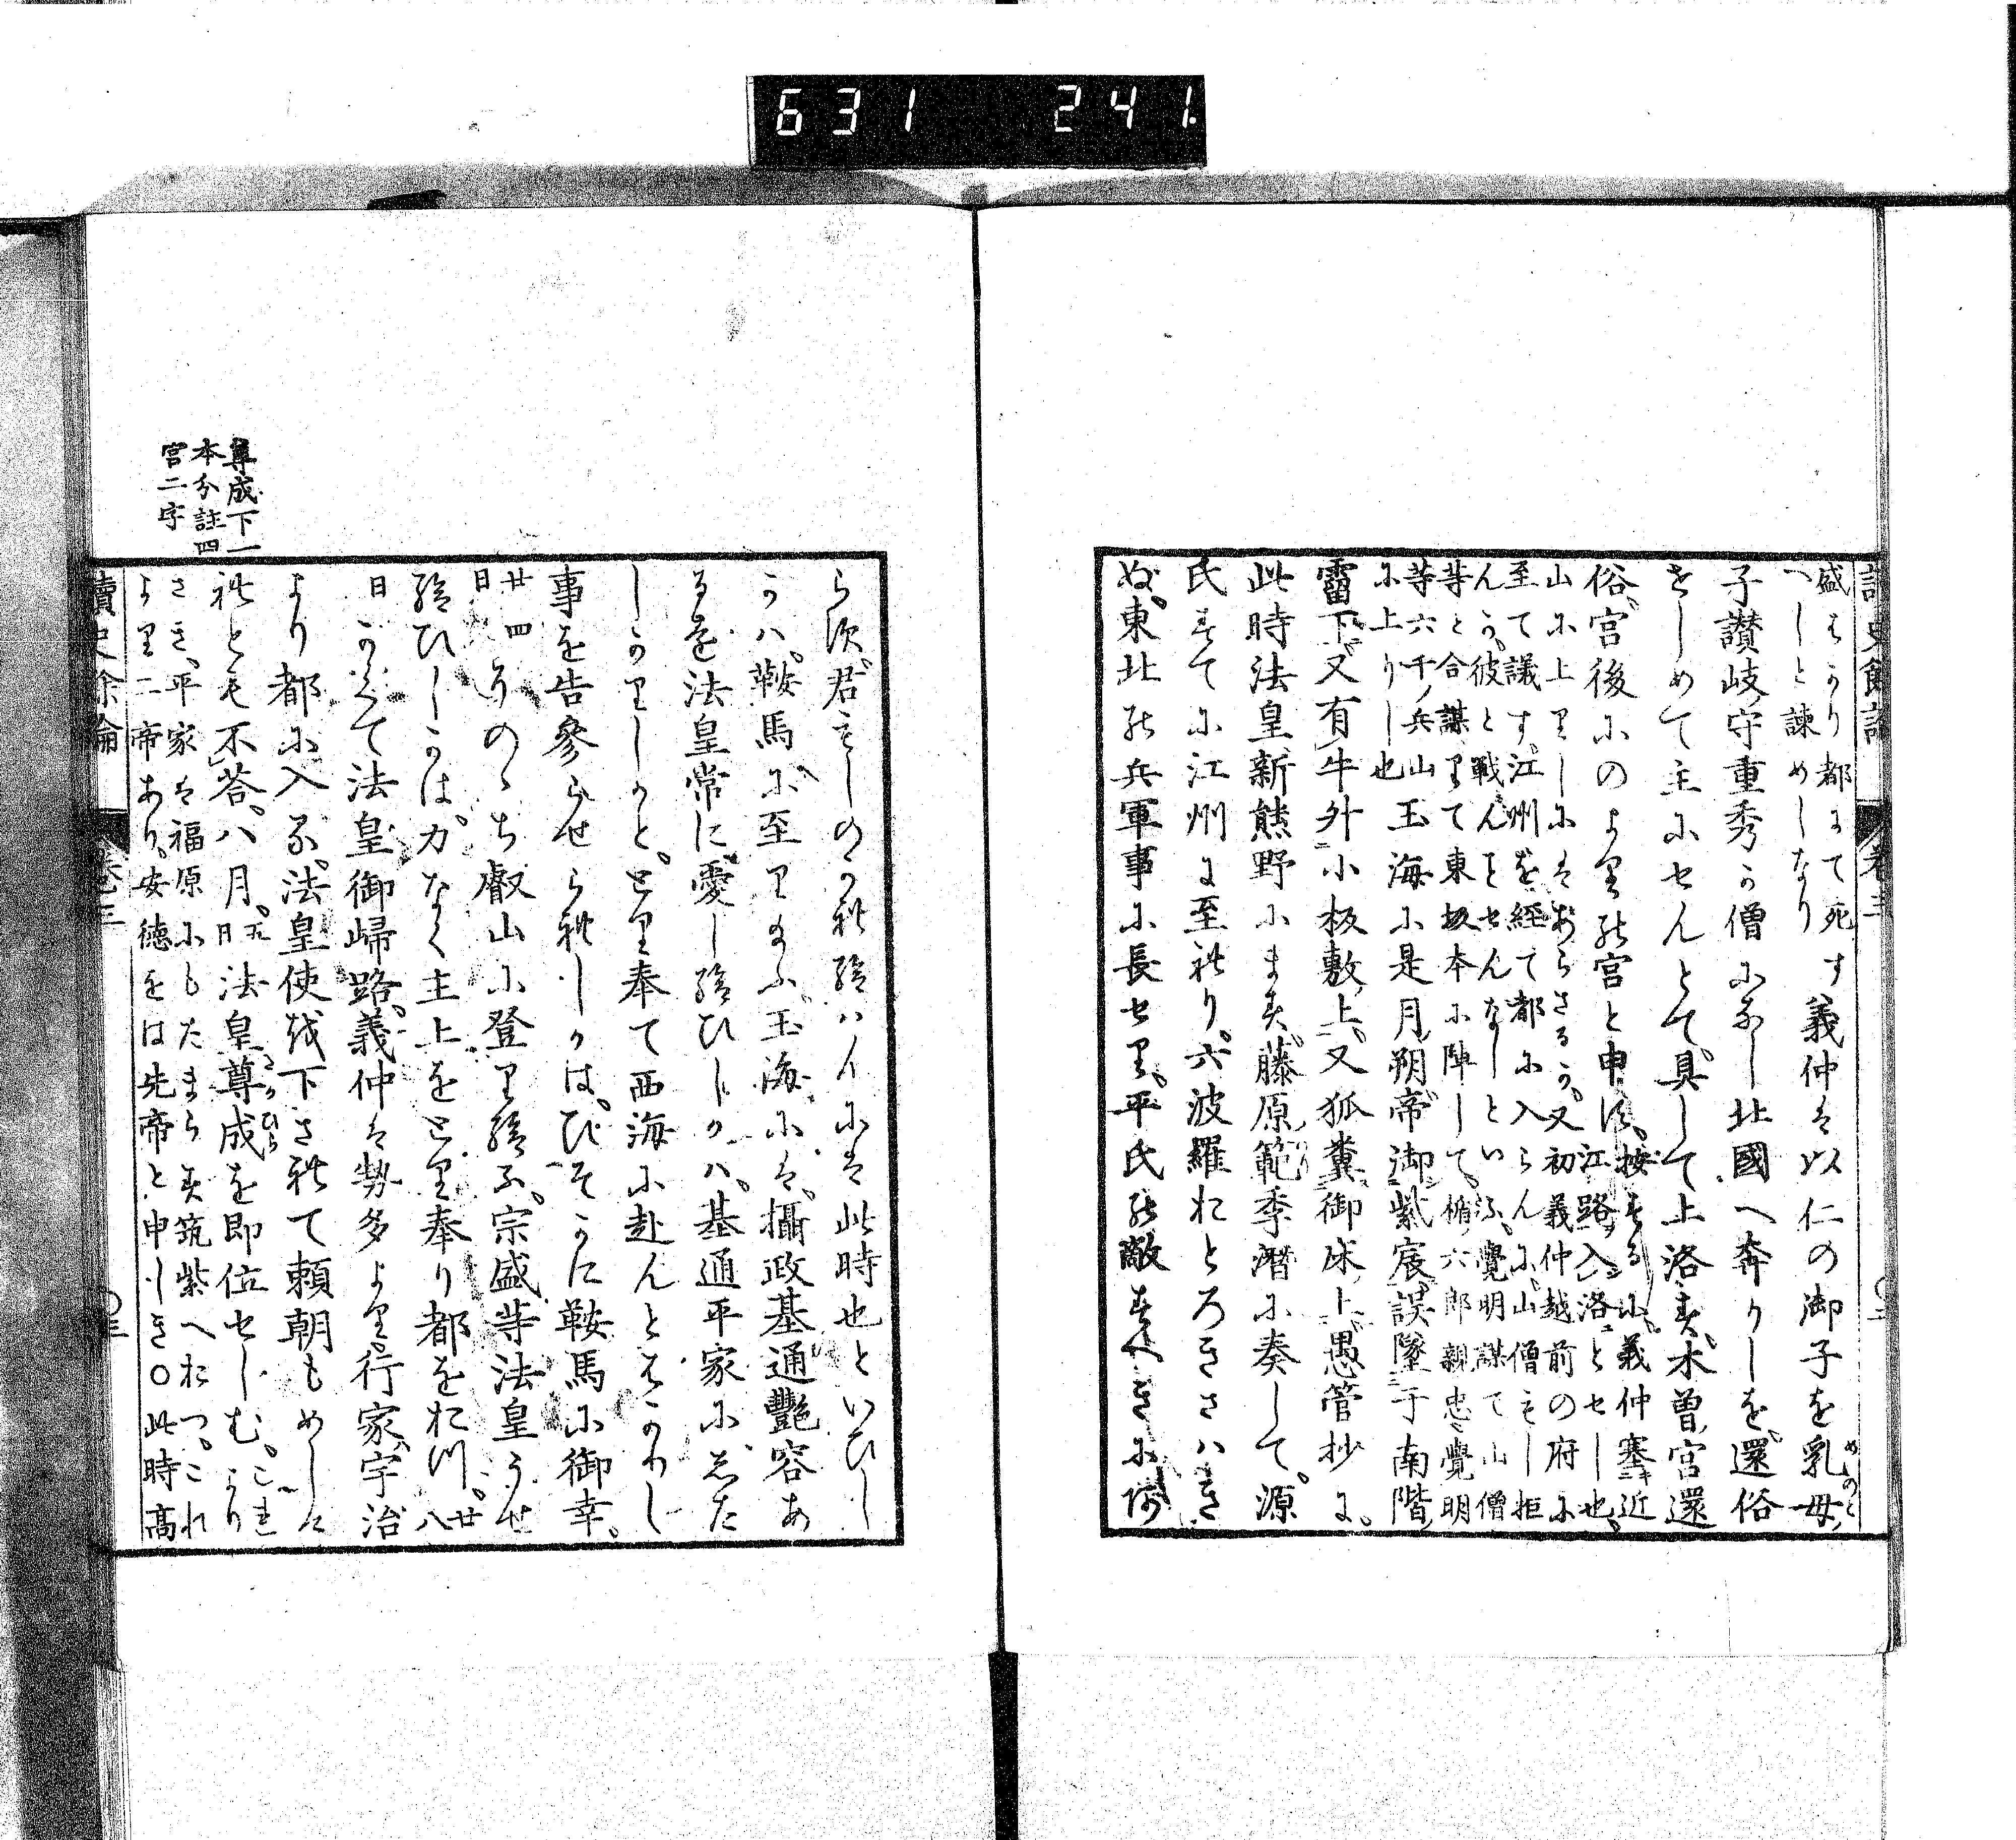 631 241.
讀史餘論 卷三 〇二
盛はかり都にて死す
へしと諫めしなり
義仲は以仁の御子を乳母
めのと
子讃岐ノ守重秀か僧になし北國へ奔りしを還俗
せしめて主にせんとて具して上洛す木曽宮還
俗宮後にのより能宮と申す
按するに義仲塞キ近
江路ヲ入ニ洛ニとせし也
山に上りしにはあらさるか又初義仲越前の府に
至て議す江州を経て都に入らんに山僧もし拒
んか彼と戦んもせんなしといふ覺明謀て山僧
等と合謀りて東坂本に陣して楯ノ六郎親忠覺明
等六千ノ兵山
に上りし也
玉海に是月朔帝御紫宸誤墜于南階
雷下又有牛外小板敷上又狐糞御床上愚管抄に
此時法皇新熊野にます藤原ノ範季潜に奏して源
氏すてに江州に至れり六波羅おとろきさハき
ぬ東北の兵軍事に長せり平氏の敵すへきに非
す君ましのかれ給ハんには此時也といひし
かハ鞍馬に至りまふ玉海には攝政基通艷容あ
るを法皇常に愛し給ひしかハ基通平家にした
しかりしかととり奉て西海に赴んとはかりし
事を告參らせられしかはひそかに鞍馬に御幸
廿四
日
そのゝち叡山に登り給ふ宗盛等法皇うせ
給ひしかは力なく主上をとり奉り都をおつ
廿八
日
かくて法皇御歸路義仲は勢多より行家宇治
より都に入る法皇使を下されて頼朝もめしゝ
れとも不答八月
五日
法皇尊成を即位せしむ
たかひら
これより
さき平家は福原にもたまらす筑紫へおつこれ
より二帝あり安徳をは先帝と申しき〇此時高
讀史餘論 卷三 〇三
尊成下一
本分註四
宮二字